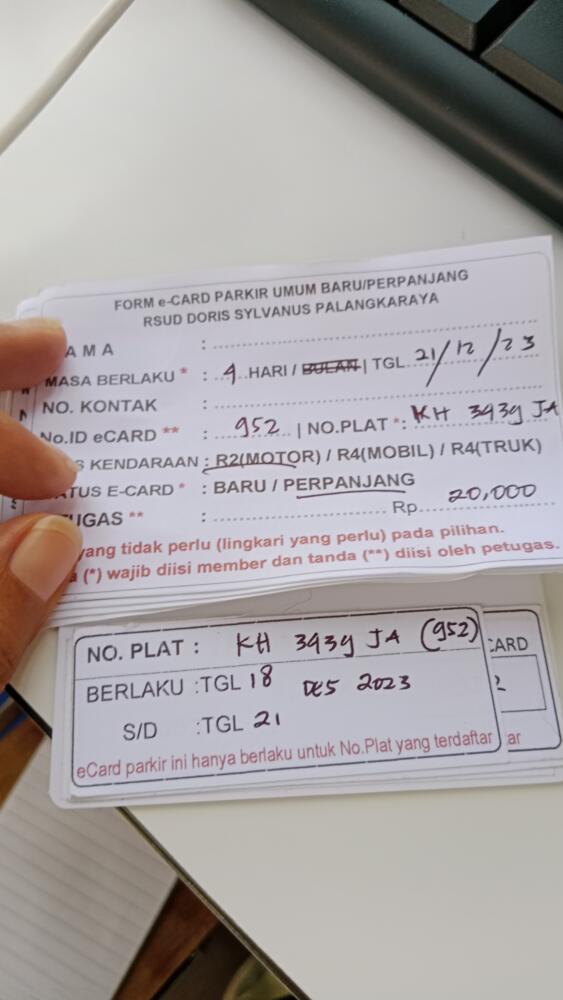 FORM e-CARD PARKIR UMUM BARU/PERPANJANG
RSUD DORIS SYLVANUS PALANGKARAYA
AMA :
MASA BERLAKU * : 4 HARI / BULAN | TGL 21/12/23
NO. KONTAK :
No.ID eCARD ** : 952 | NO.PLAT *: KH 3439 JA
S KENDARAAN : R2(MOTOR) / R4(MOBIL) / R4(TRUK)
ATUS E-CARD * : BARU / PERPANJANG
UGAS ** : Rp. 20,000
yang tidak perlu (lingkari yang perlu) pada pilihan.
a (*) wajib diisi member dan tanda (**) diisi oleh petugas.
NO. PLAT : KH 3439 JA (952)
CARD
BERLAKU :TGL 18 DES 2023
2
S/D :TGL 21
eCard parkir ini hanya berlaku untuk No.Plat yang terdaftar
ar